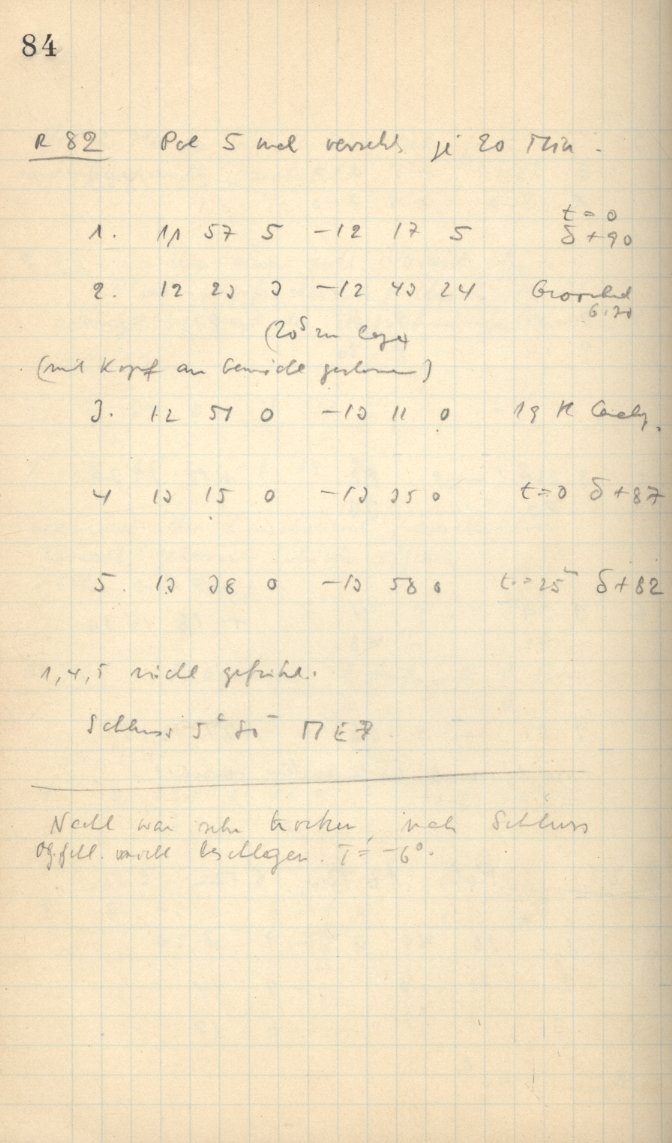 84
R 82 Pol 5 mal je 20 Min.
1. 11 57 5 -12 17 5 t=0
δ+90
2. 12 23 3 -12 43 24
6.20
(20s zu
(mit Kopf an
3. 12 51 0 -13 11 0 19 H
4 13 15 0 -13 35 0 t=0 δ+87
5. 13 38 0 -13 58 0 t=25m δ+82
1, 4, 5 nicht geführt.
Schluss 5h 50m MEZ
Nacht war sehr trocken, nach Schluss
nicht beschlagen. T = -6°.